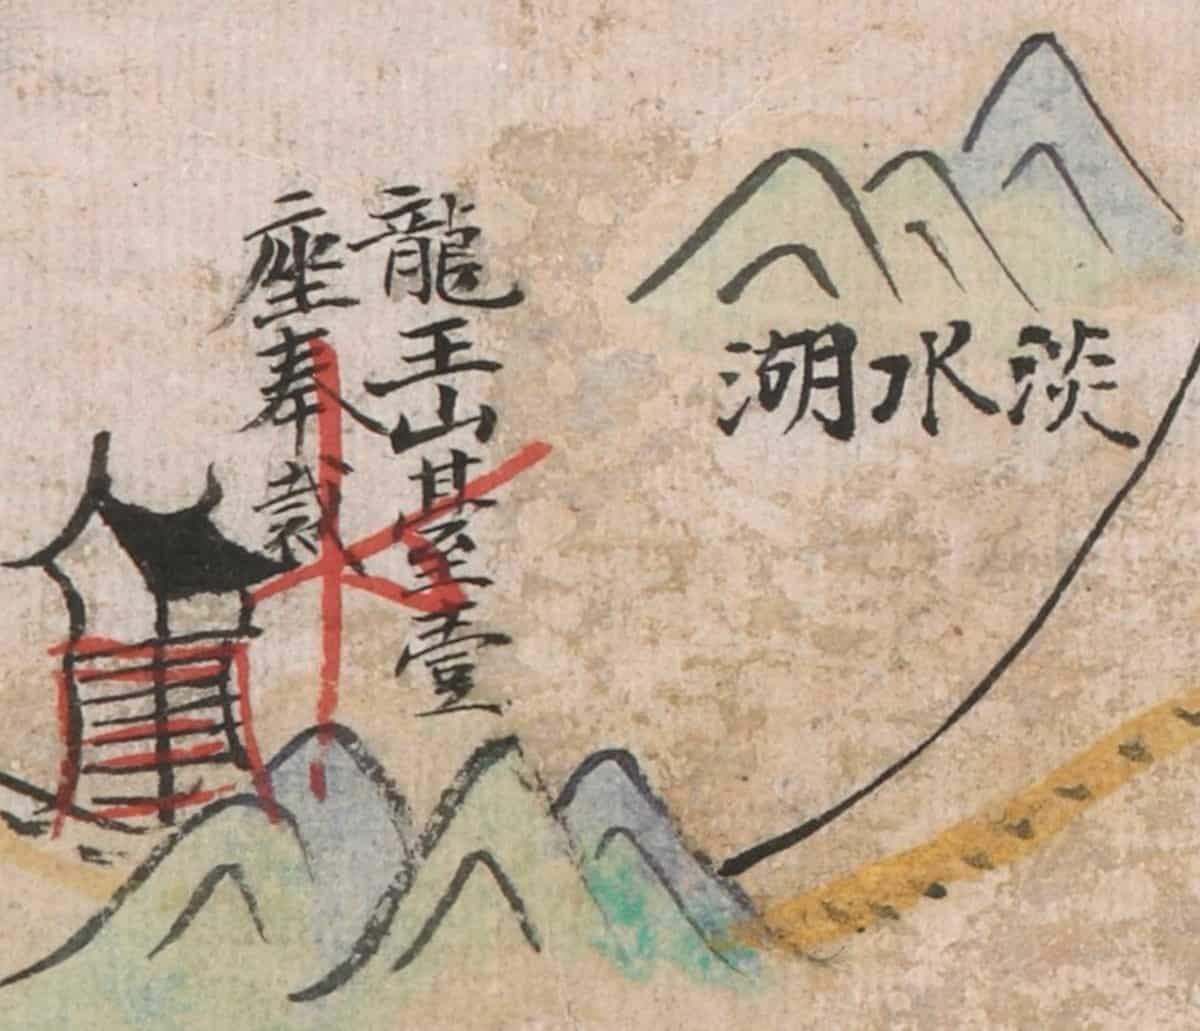 淡水湖
龍王山臺壹
座奉裁